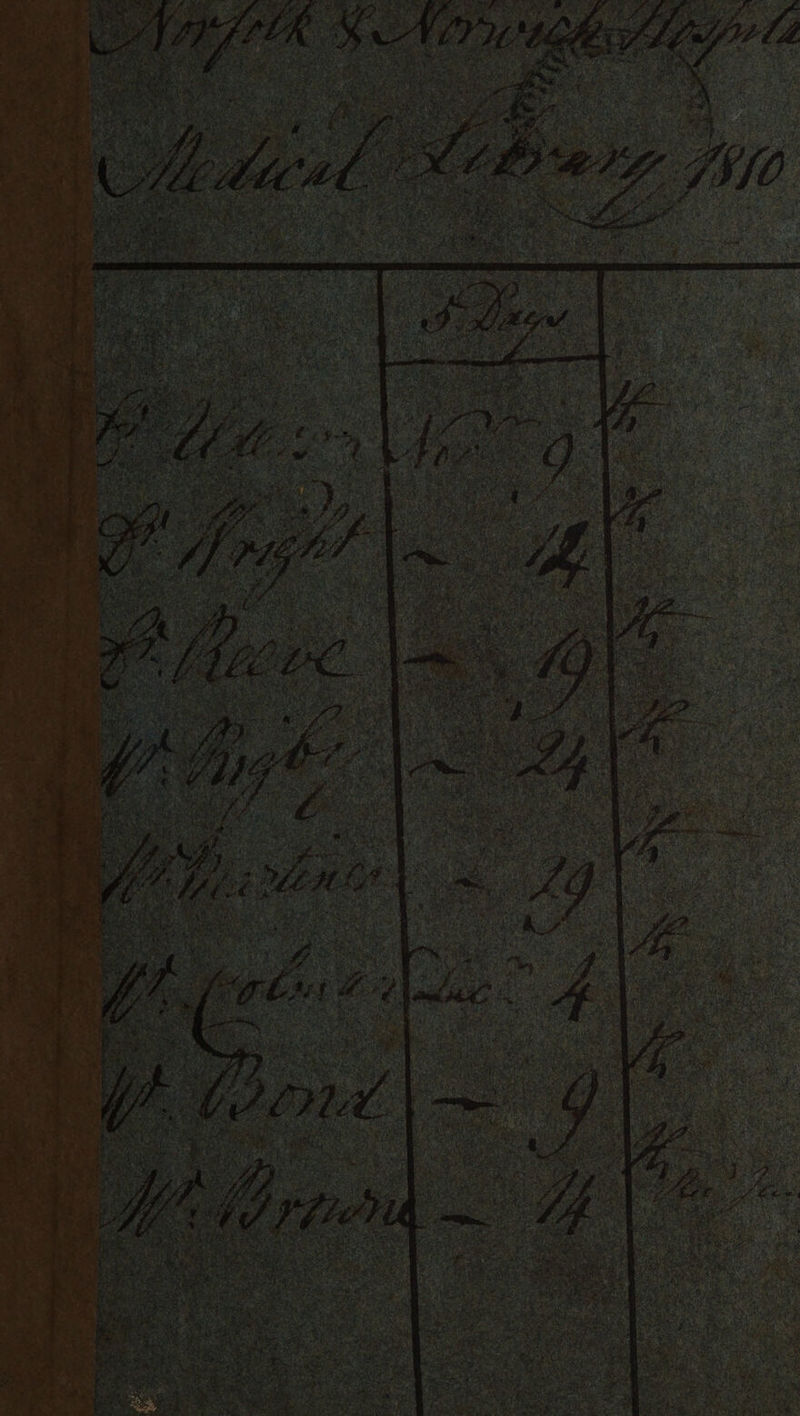 Norfolk & Norwich Hospita
Medical Library 1810
5 Days
Dr Novr 9th
Dr Wright ~ 14th
Dr. Reeve — 19th
Mr. Rigby ~ 24th
Mr Martineau - 29th
Mr. Colman Decr 4th
Mr. Bond — 9th
Mr. Browne — 14th